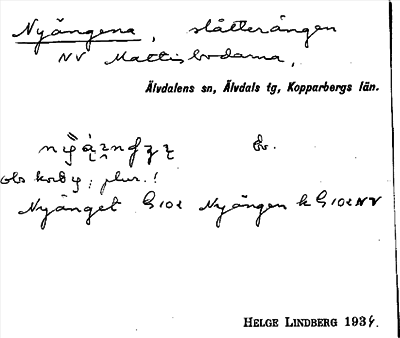 Nyängena, slåtterängen
NV Mattisbodarna,
Älvdalens sn, Älvdals tg, Kopparbergs län.
obs kort y; plur.!
Nyänget G102 Nyängen k G102 NV
HELGE LINDBERG 1934.